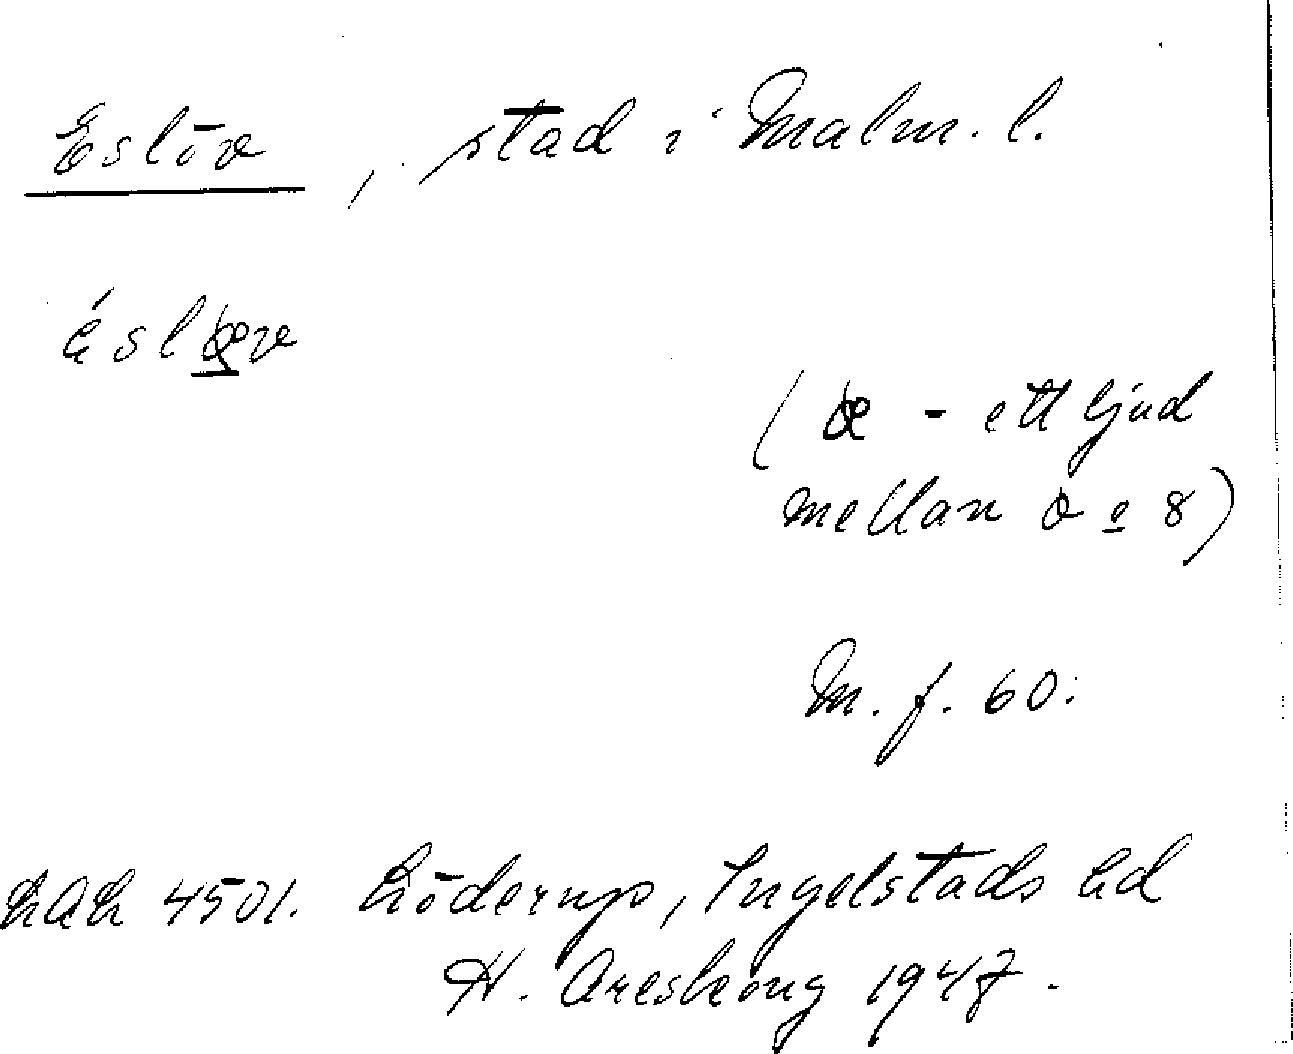 Eslöv, stad i Malm. l.
éslꝏv
(ꝏ - ett ljud
mellan o o 8)
M. f. 60.
LAL 4501. Löderup, Ingelstads hd
H. Areskoug 1947.